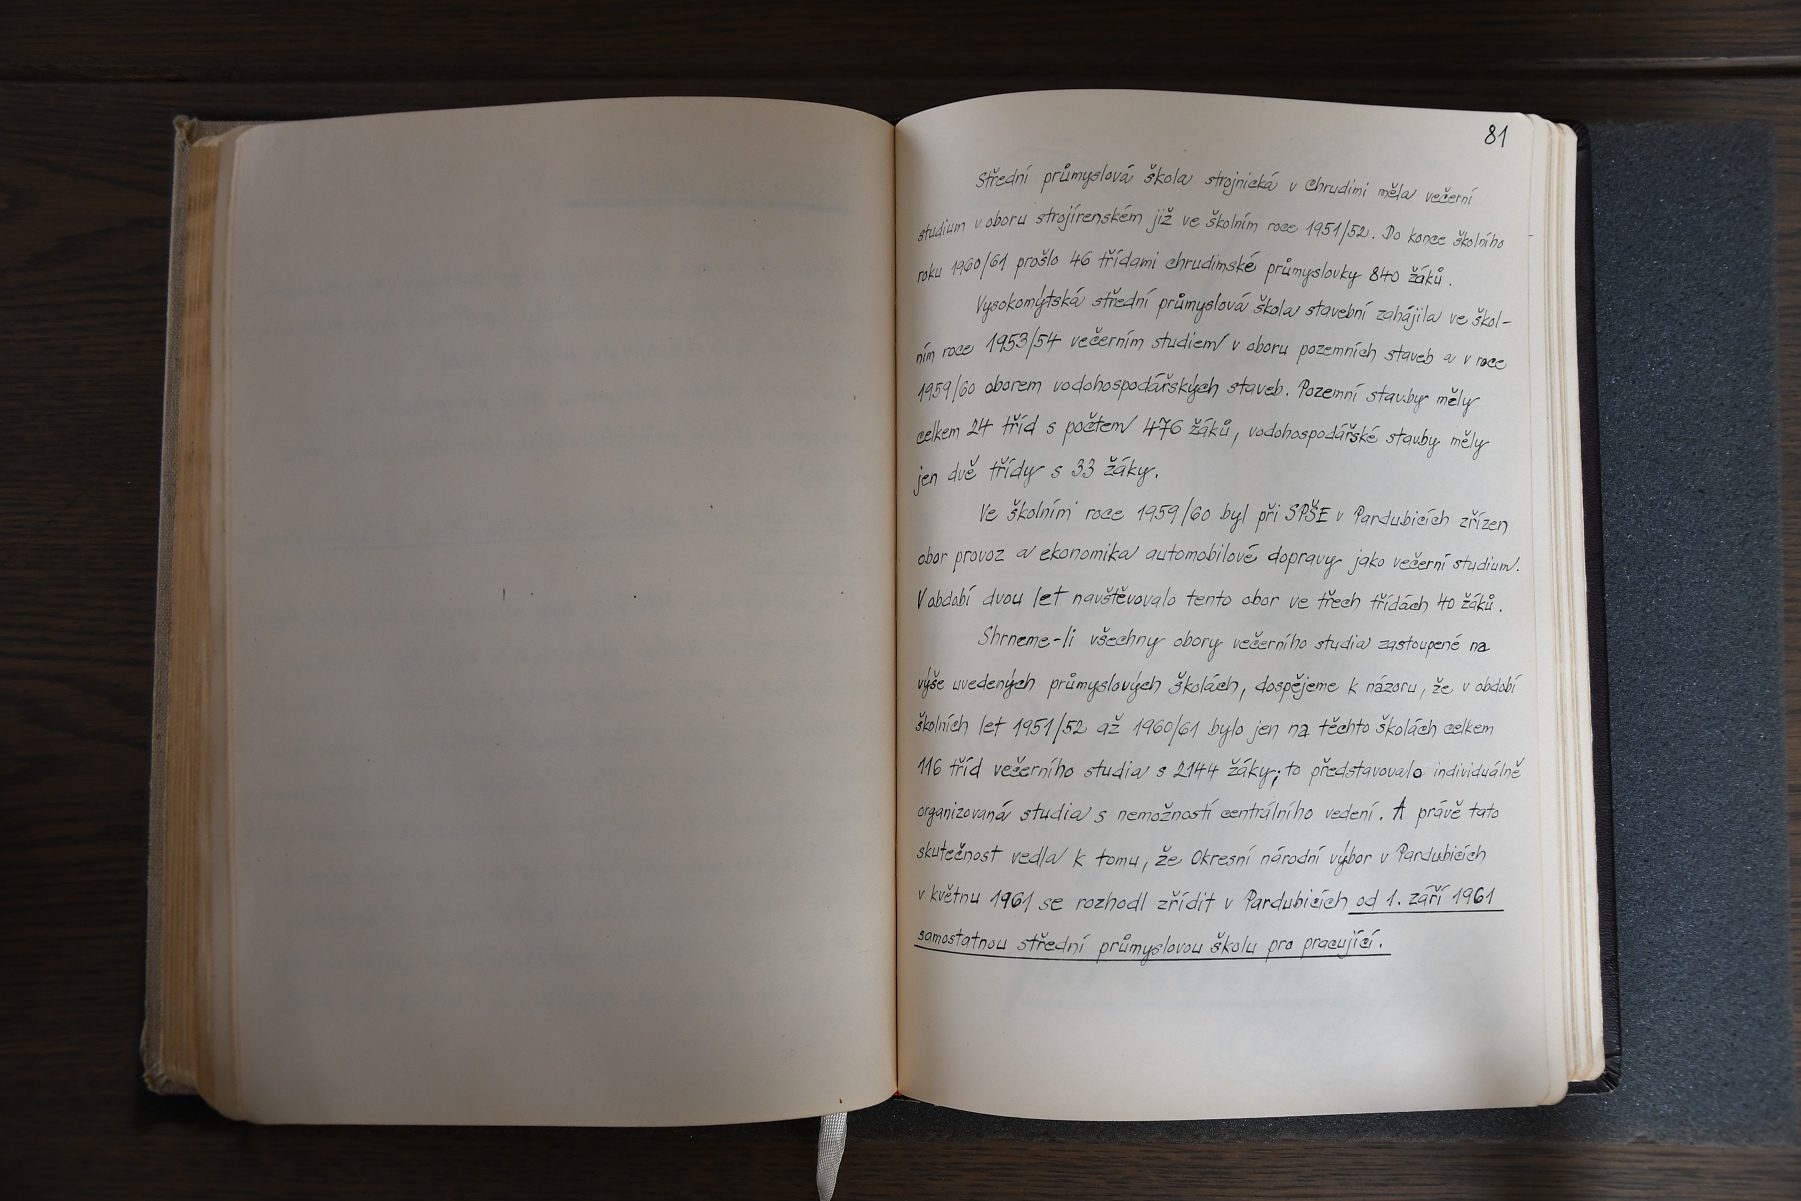 81
Střední průmyslová škola strojnická v Chrudimi měla večerní
studium v oboru strojírenském již ve školním roce 1951/52. Do konce školního
roku 1960/61 prošlo 46 třídami chrudimské průmyslovky 840 žáků.
Vysokomýtská střední průmyslová škola stavební zahájila ve škol-
ním roce 1953/54 večerním studiem v oboru pozemních staveb a v roce
1959/60 oborem vodohospodářských staveb. Pozemní stavby měly
celkem 24 tříd s počtem 476 žáků, vodohospodářské stavby měly
jen dvě třídy s 33 žáky.
Ve školním roce 1959/60 byl při SPŠE v Pardubicích zřízen
obor provoz a ekonomika automobilové dopravy jako večerní studium.
V období dvou let navštěvovalo tento obor ve třech třídách 40 žáků.
Shrneme-li všechny obory večerního studia zastoupené na
výše uvedených průmyslových školách, dospějeme k názoru, že v období
školních let 1951/52 až 1960/61 bylo jen na těchto školách celkem
116 tříd večerního studia s 2144 žáky; to představovalo individuálně
organizovaná studia s nemožností centrálního vedení. A právě tato
skutečnost vedla k tomu, že Okresní národní výbor v Pardubicích
v květnu 1961 se rozhodl zřídit v Pardubicích od 1. září 1961
samostatnou střední průmyslovou školu pro pracující.